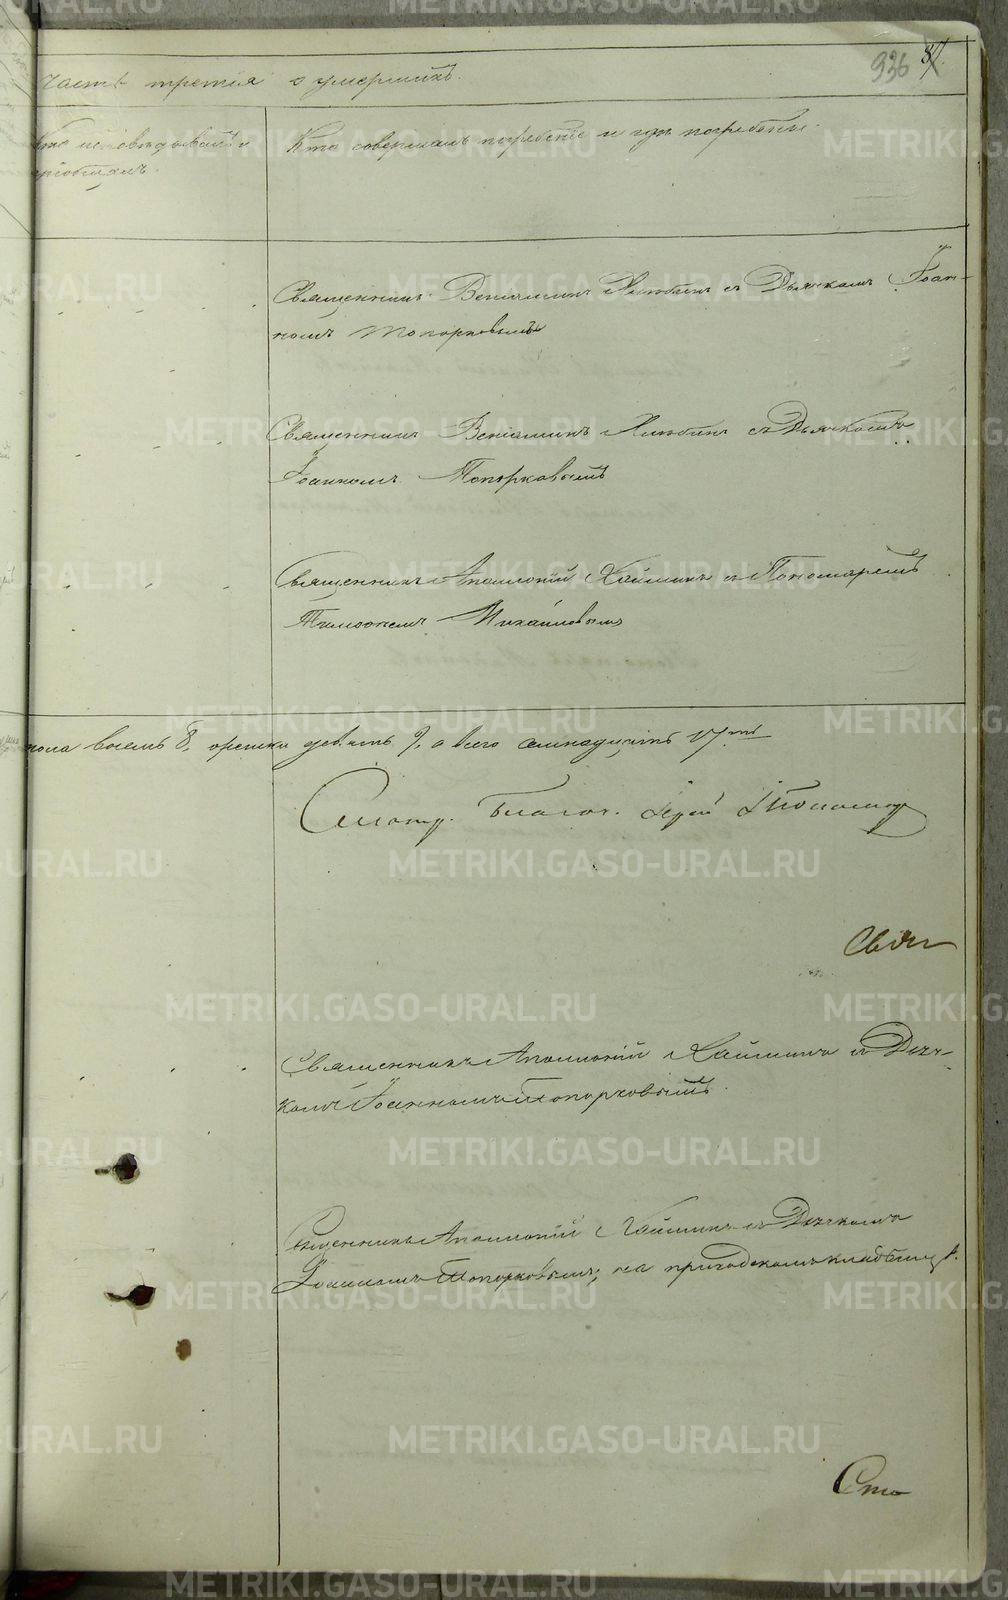 936
часть третія о умершихъ.
Кто исповѣдывалъ и
пріобщалъ.
Кто совершалъ погребеніе и гдѣ погребены.
Священникъ Веніаминъ съ Дьячкомъ Іоан-
номъ Топорковымъ
Священникъ Веніаминъ съ Дьячкомъ
Іоанномъ Топорковымъ
Священникъ Аполлоній Хайминъ съ Пономаремъ
Тимоѳеемъ Михайловымъ
пола восемь 8, женска девять 9, а всего семнадцать 17.
Смотр. Благоч. Іерей
Священникъ Аполлоній Хайминъ съ Дьяч-
комъ Іоанномъ Топорковымъ
Священникъ Аполлоній Хайминъ съ Дьячкомъ
Іоанномъ Топорковымъ, на приходскомъ кладбищѣ.
METRIKI.GASO-URAL.RU